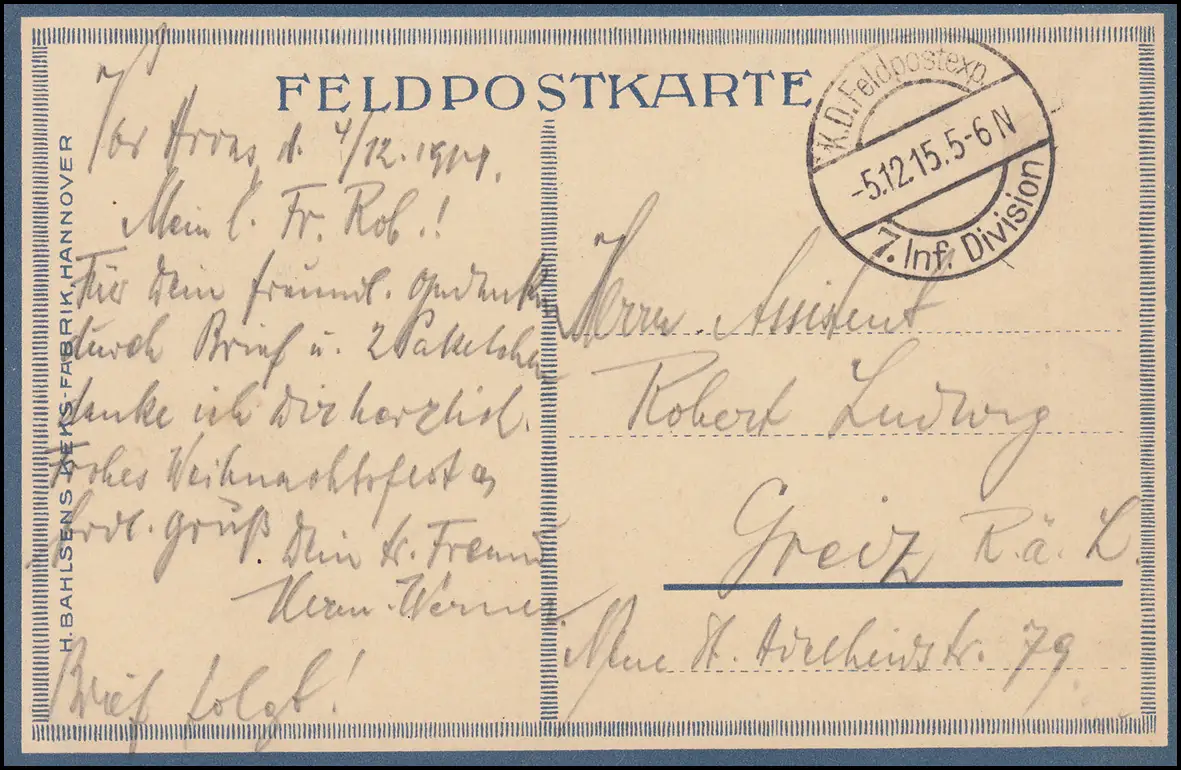 FELDPOSTKARTE
K.D. Feldpostexp.
-5.12.15. 5-6 N
7. Inf. Division
H. BAHLSENS KEKS-FABRIK, HANNOVER
Vor Arras, d. 4/12.
Mein l. Fr. Rob.
Für Dein freundl. Gedenken
durch Brief u. 2
danke ich Dir herzlich.
Frohes Weihnachtsfest
Gruß
Dein Freund
Werner
Brief folgt!
Herrn Assistent
Robert Ludwig
Greiz R. ä. L.
Neue 79